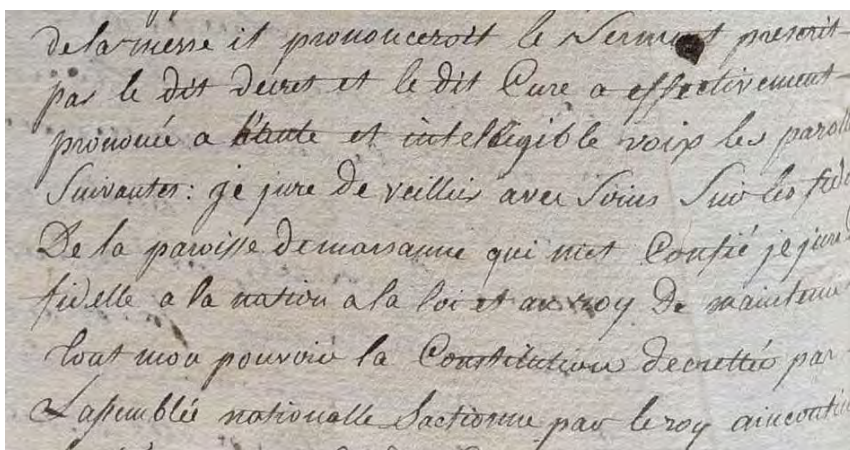 de la messe il prononceroit le Serment prescrit
par le dit decret et le dit Cure a effectivement
prononcé a haute et intelligible voix les parolle
Suivantes: je jure de veiller avec Soins Sur les fide
De la paroisse demarsanne qui met Confié je jure
fidelle a la nation a la loi et au roy De mainteni
tout mon pouvoir la Constitution decrettée par
Lassemblée nationalle Sactionne par le roy